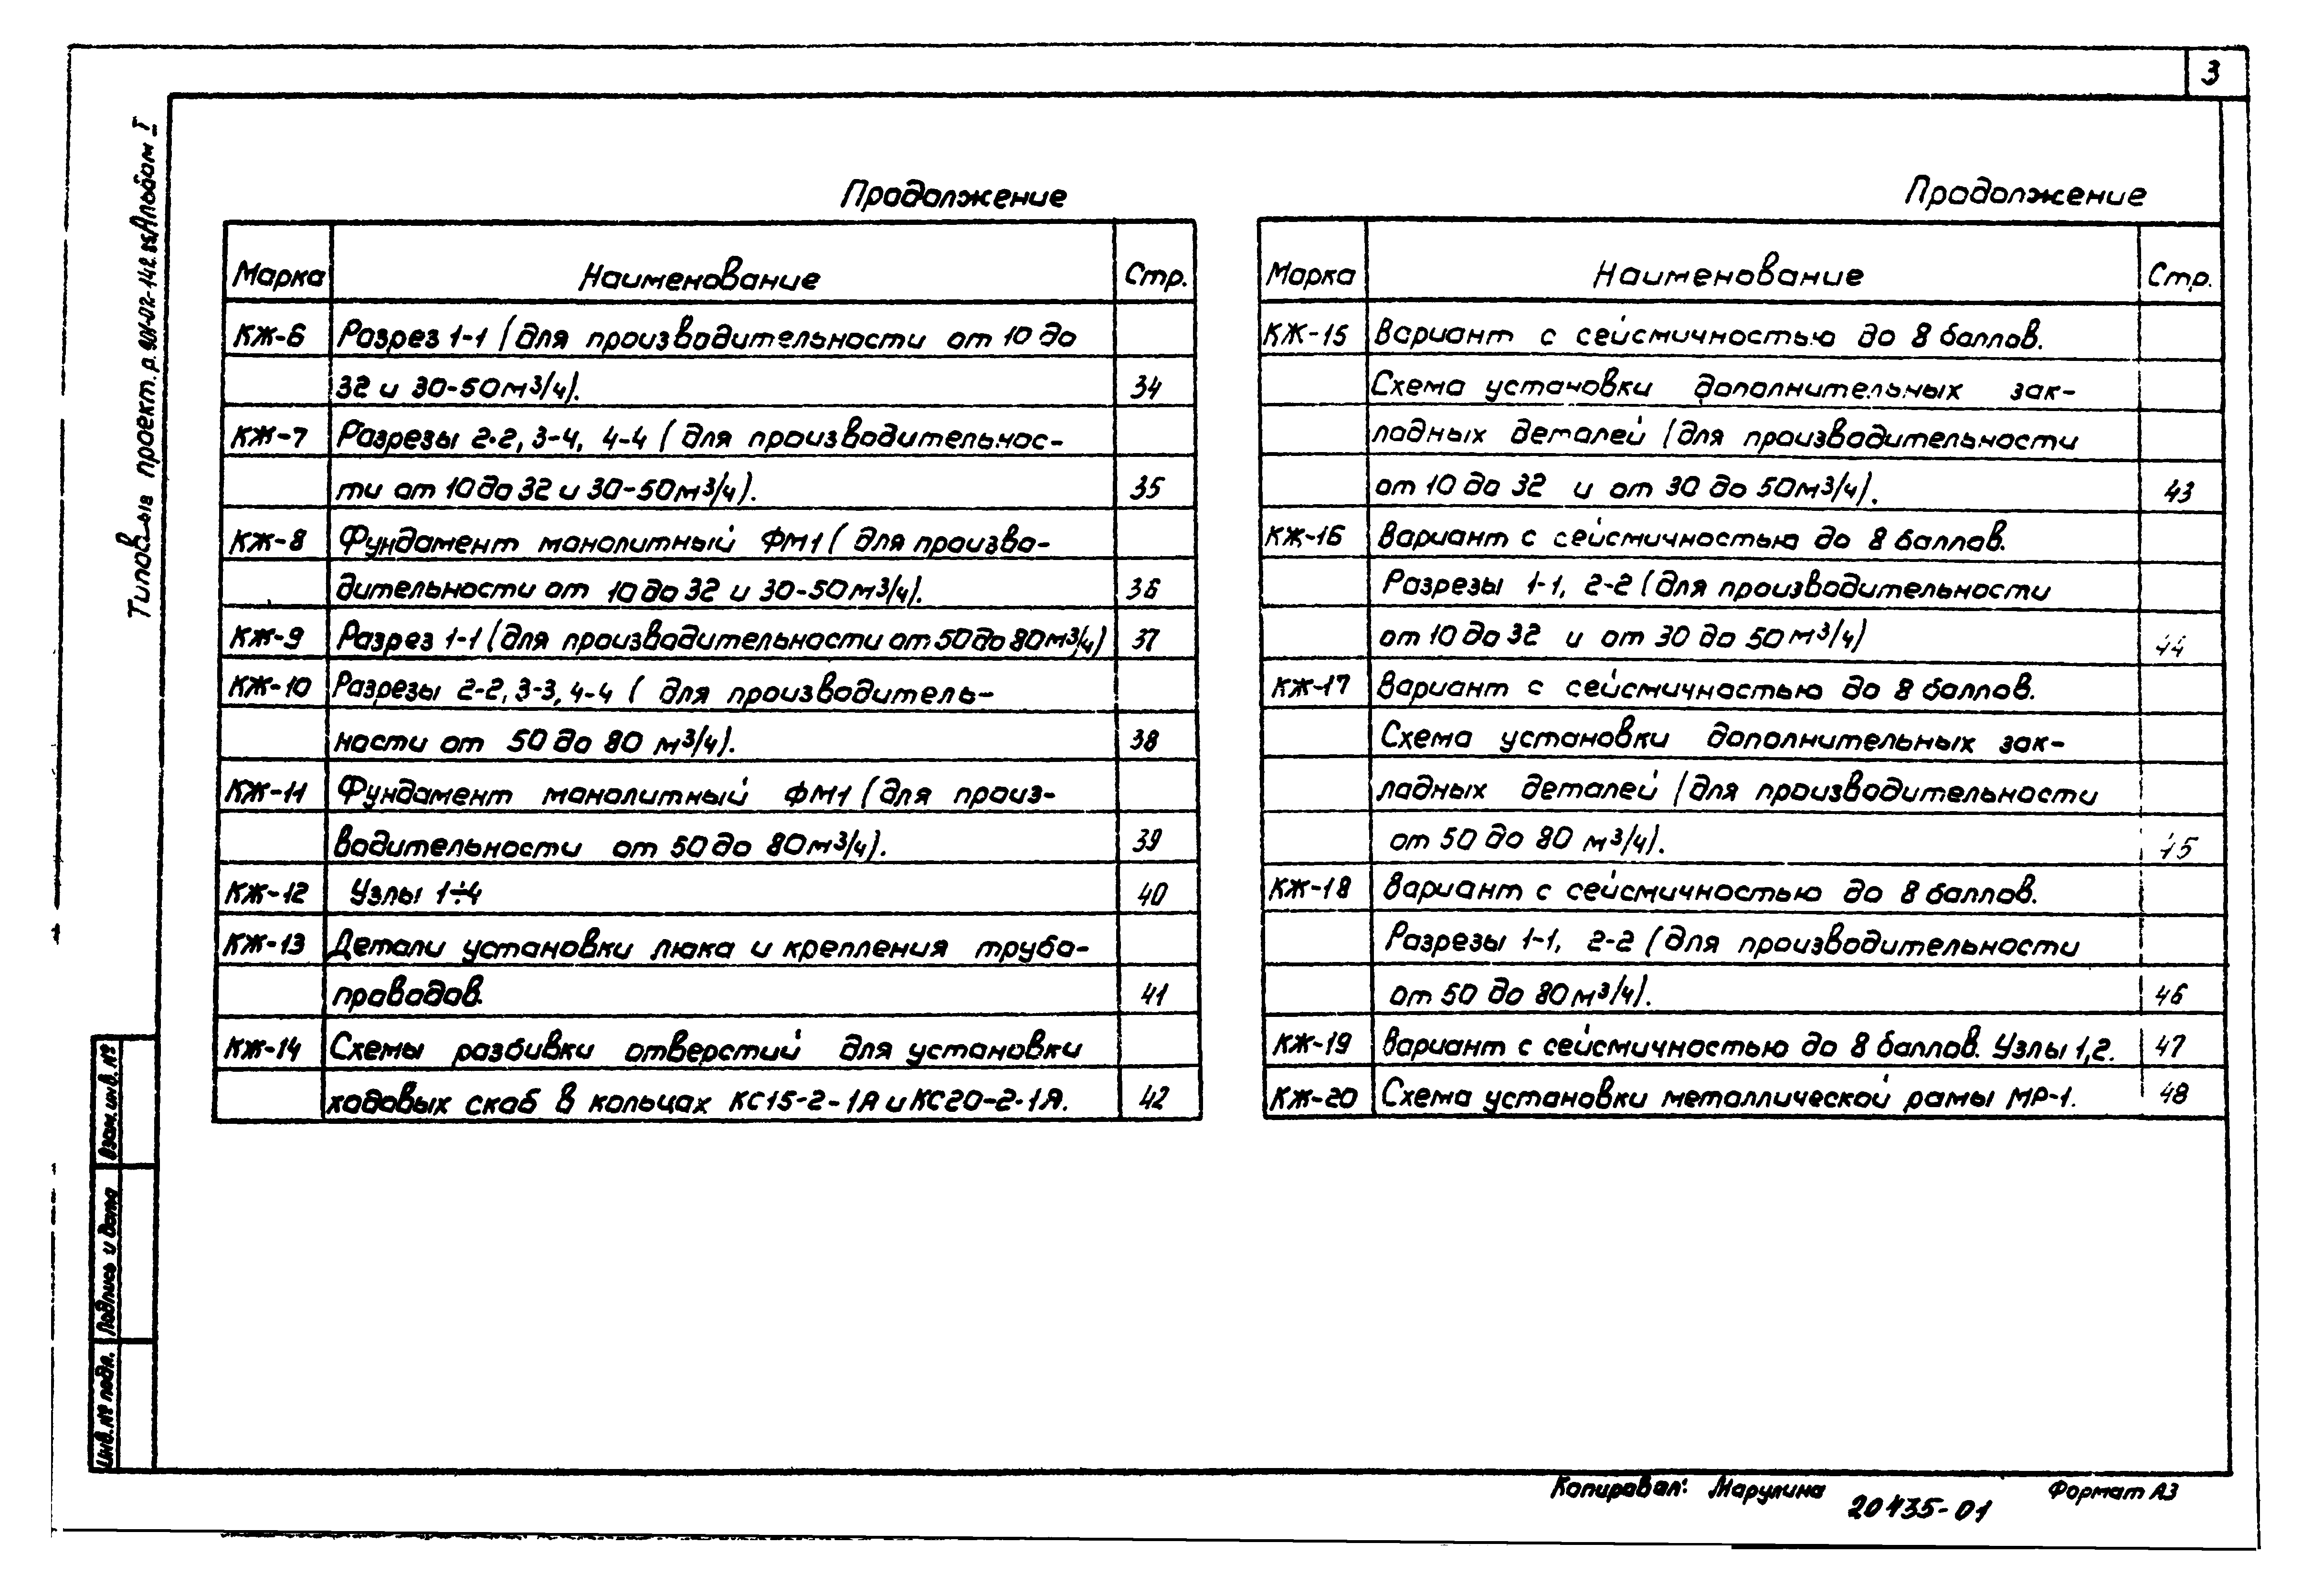 3
Продолжение
Марка Наименование Стр.
КЖ-6 Разрез 1-1 (для производительности от 10 до
32 и 30-50 м³/ч). 34
КЖ-7 Разрезы 2-2, 3-4, 4-4 (для производительнос-
ти от 10 до 32 и 30-50 м³/ч). 35
КЖ-8 Фундамент монолитный ФМ1 (для произво-
дительности от 10 до 32 и 30-50 м³/ч). 36
КЖ-9 Разрез 1-1 (для производительности от 50 до 80 м³/ч) 37
КЖ-10 Разрезы 2-2, 3-3, 4-4 (для производитель-
ности от 50 до 80 м³/ч). 38
КЖ-11 Фундамент монолитный ФМ1 (для произ-
водительности от 50 до 80 м³/ч). 39
КЖ-12 Узлы 1÷4 40
КЖ-13 Детали установки люка и крепления трубо-
проводов. 41
КЖ-14 Схемы разбивки отверстий для установки
ходовых скоб в кольцах КС15-2-1А и КС20-2-1А. 42
Продолжение
Марка Наименование Стр.
КЖ-15 Вариант с сейсмичностью до 8 баллов.
Схема установки дополнительных зак-
ладных деталей (для производительности
от 10 до 32 и от 30 до 50 м³/ч). 43
КЖ-16 Вариант с сейсмичностью до 8 баллов.
Разрезы 1-1, 2-2 (для производительности
от 10 до 32 и от 30 до 50 м³/ч) 44
КЖ-17 Вариант с сейсмичностью до 8 баллов.
Схема установки дополнительных зак-
ладных деталей (для производительности
от 50 до 80 м³/ч). 45
КЖ-18 Вариант с сейсмичностью до 8 баллов.
Разрезы 1-1, 2-2 (для производительности
от 50 до 80 м³/ч). 46
КЖ-19 Вариант с сейсмичностью до 8 баллов. Узлы 1,2. 47
КЖ-20 Схема установки металлической рамы МР-1. 48
проект. Альбом I
Взам. инв. №
Подпись и дата
Инв. № подл.
Копировал: Марулина
20435-01
Формат А3